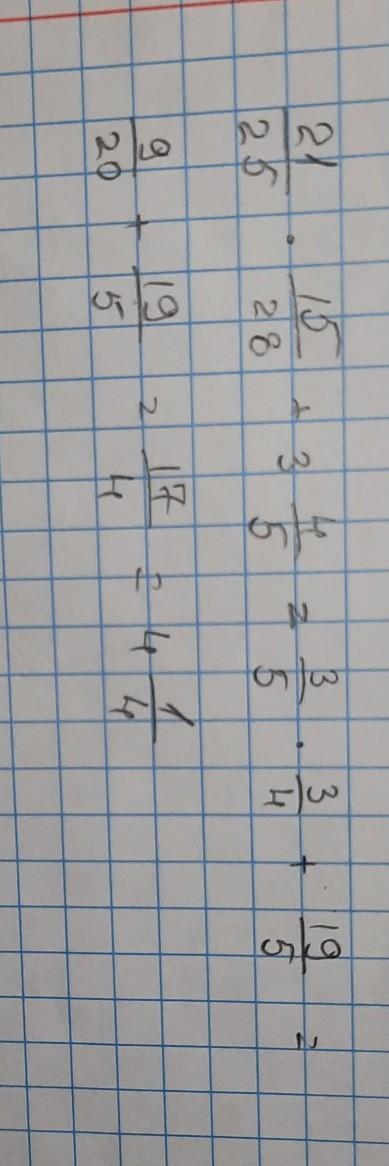 21/25 · 15/28 + 3 4/5 = 3/5 · 3/4 + 19/5 =
9/20 + 19/5 = 17/4 = 4 1/4